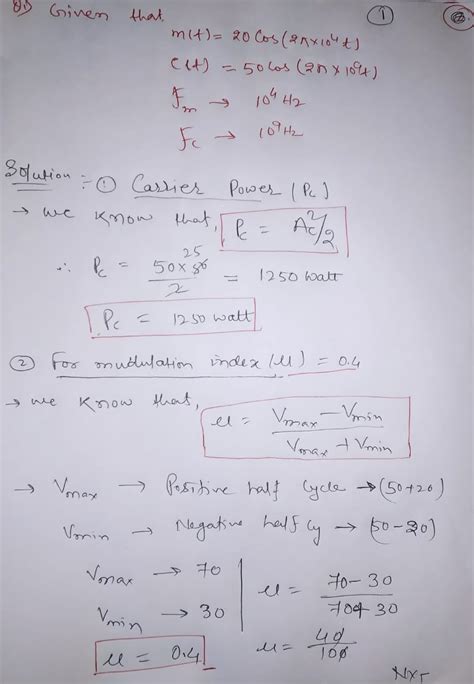 Q.1) Given that ①
m(t) = 20 Cos(2π×10⁴t)
C(t) = 50 Cos (2π×10⁹t)
Fm → 10⁴ Hz
Fc → 10⁹ Hz
Solution :- ① Carrier Power (Pc)
→ we know that, Pc = Ac²/2
∴ Pc = 50×50 25 / 2 = 1250 Watt
Pc = 1250 watt
② For mudulation index (u) = 0.4
→ we know that, u = Vmax - Vmin / Vmax + Vmin
→ Vmax → Positive half Cycle → (50+20)
Vmin → Negative half Cy → (50-20)
Vmax → 70
Vmin → 30
u = 70-30 / 70+30
u = 0.4
u = 40 / 100